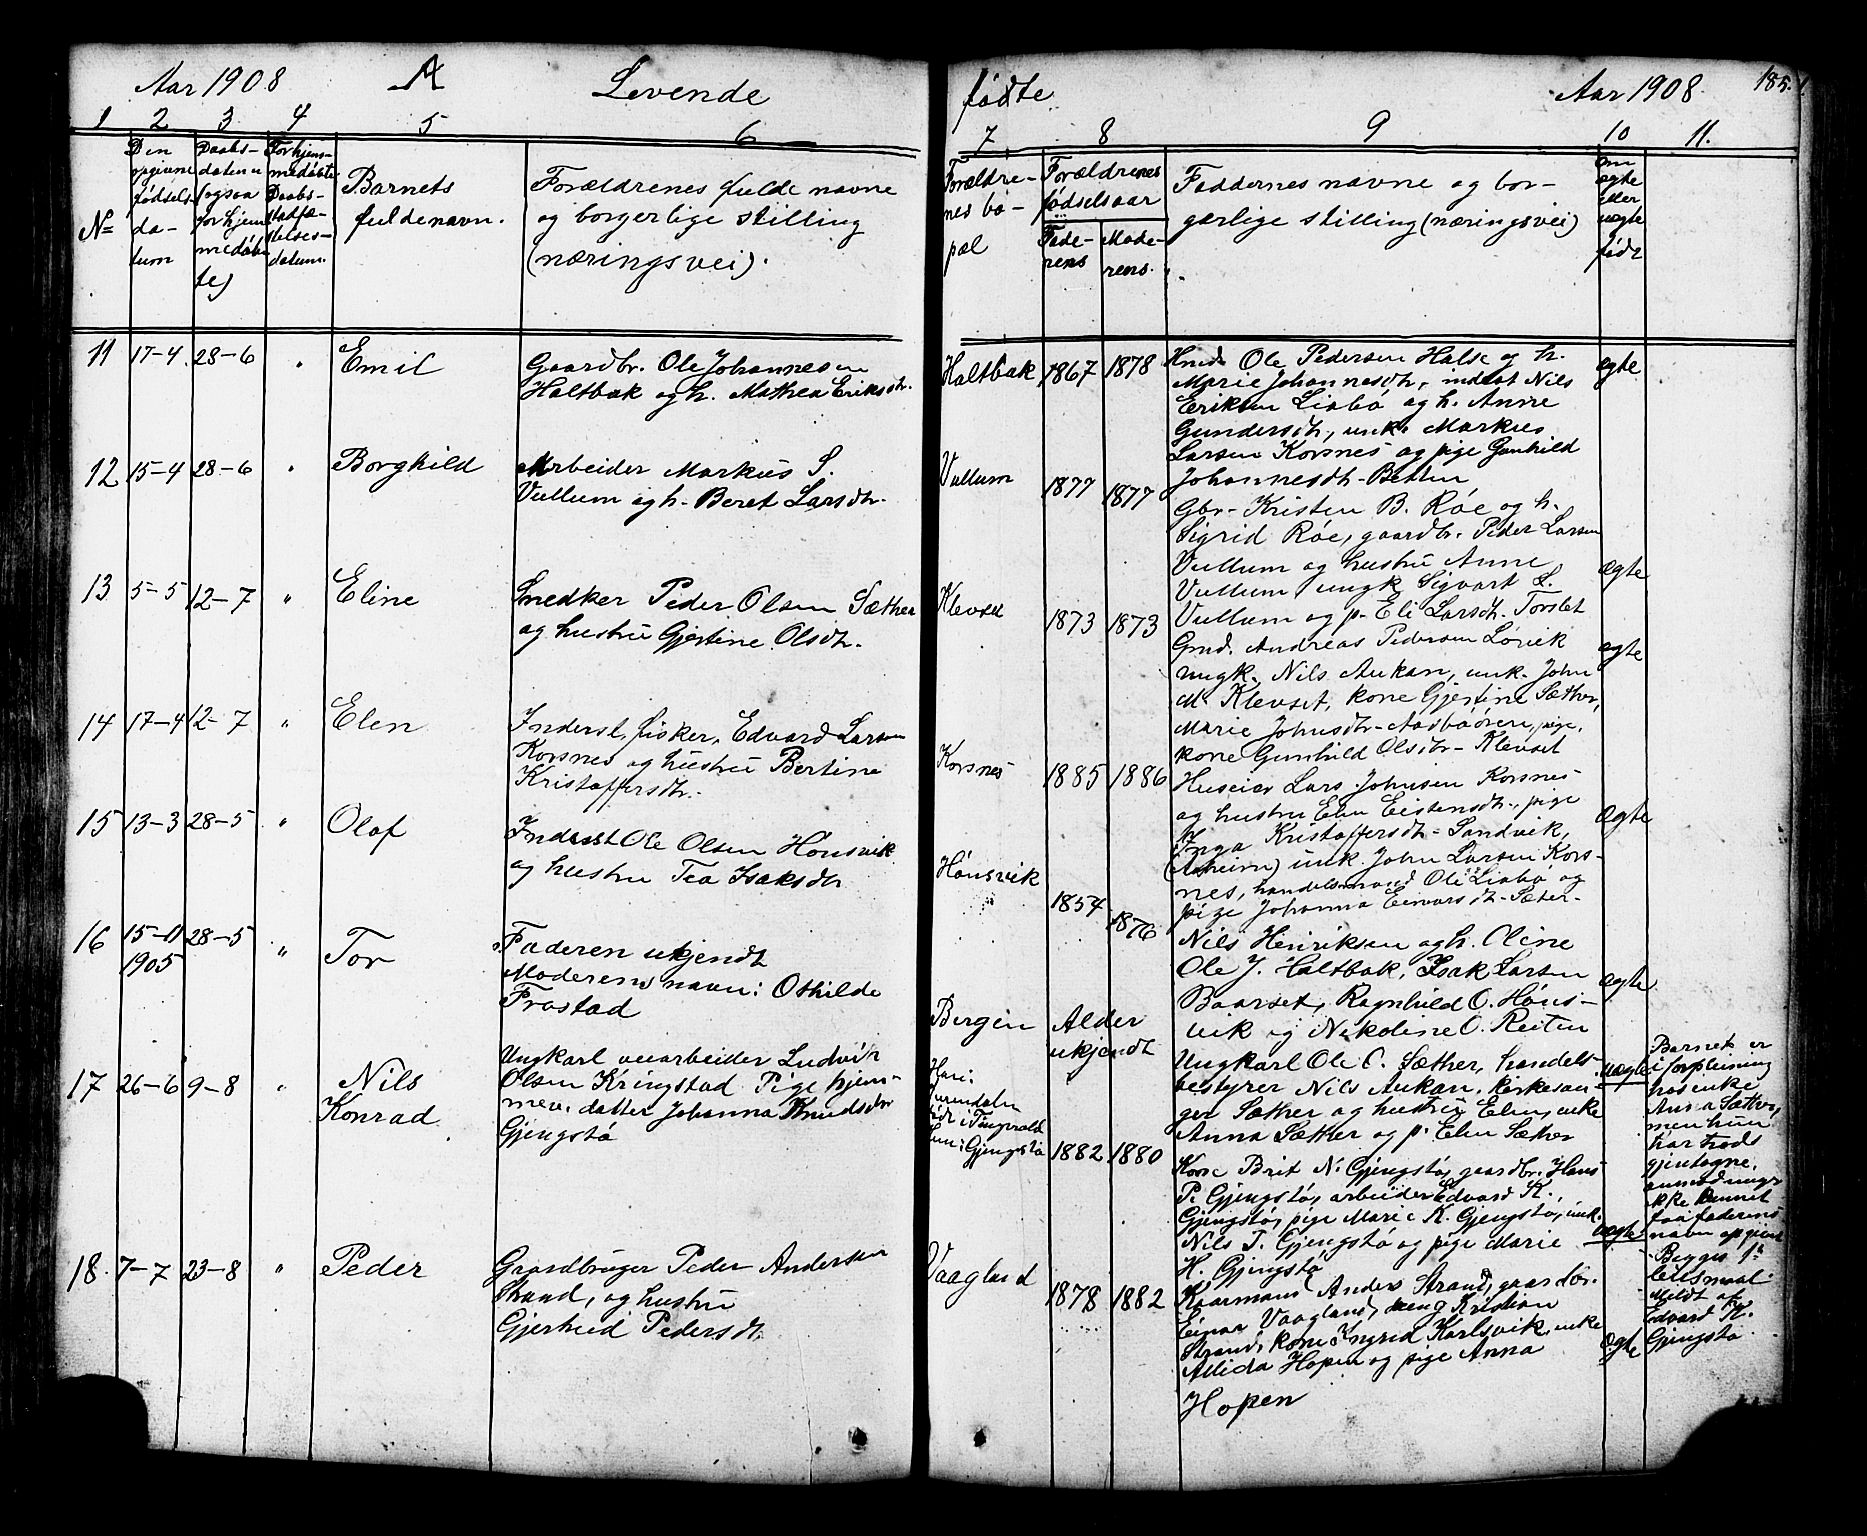 Aar 1908
A
Levende
1 2 3. 4 5 6
No
Den opgivne fødsels-
da-
tum
Daabs-
daten
(ogsaa
for hjem
medøbte)
For hjem-
medøbte
Daabs-
stadfæ-
stelses-
datum.
Barnets
fulde navn.
Forældrenes fulde navne
og borgerlige stilling
(næringsvei).
11 17-4. 28-6 " Emil
Gaardbr. Ole Johannesen
Haltbak og h. Mathea Eriksdtr.
12 15-4 28-6 " Borghild
Arbeider Markus S.
Vullum og h. Beret Larsdtr.
13 5-5 12-7 " Eline
Snedker Peder Olsen Sæther
og hustru Gjertine Olsdtr.
14 17-4 12-7 " Elen
Inderst, fisker, Edvard Larsen
Korsnes og hustru Bertine
Kristoffersdtr.
15 13-3 28-5 " Olaf
Inderst Ole Olsen Hønsvik
og hustru Tea Isaksdtr
16 15-11 28-5 " Tor
1905
Faderen ukjendt
Moderens navn: Othilde
Frostad
17 26-6 9-8 " Nils
Konrad
Ungkarl veiarbeider Ludvik
Olsen Kringstad Pige hjem-
mev. datter Johanna Knudsdtr
Gjengstø
18. 7-7 23-8 " Peder
Gaardbruger Peder Andersen
Strand, og hustru
Gjertrud Pedersdt.
fødte
Aar 1908.
185.
7 8 9 10 11.
Forældre-
nes bo-
pæl
Forældrenes
fødselsaar
Fade-
rens
Mode-
rens.
Faddernes navne og bor-
gerlige stilling (næringsvei)
Om
ægte
eller
uægte
født
Haltbak 1867 1878
Ole Pedersen Halse og h. ægte
Marie Johannesdtr, inderst Nils
Eriksen Liabø og h. Anne
Gundersdtr, unk. Markus
Larsen Korsnes og pige Gunhild
Johannesdtr. Betten
Vullum 1877 1877
Gbr. Kristen B. Røe og h.
Sigrid Røe, gaardbr. Peder Larsen
Vullum og hustru Anne ægte
Vullum ungk. Sigvart L.
Vullum og p. Eli Larsdtr. Torslet
Klevset 1873 1873
Gmd. Andreas Pedersen Lørvik
ungk. Nils Aukan, unk. John ægte
M. Klevset, kone Gjertine Sæther,
Marie Johnsdtr. pige,
kone Gunhild Olsdtr. Klevset
Korsnes 1885 1886
Huseier Lars Johnsen Korsnes
og hustru Elen Eistensdtr., pige
Inga Kristoffersdtr. Sandvik, ægte
unk. John Larsen Kors-
nes, handelsmand Ole Liabø og
pige Johanna Sæter.
Hønsvik 1854 1876
Nils Henriksen og h. Oline
Ole J. Haltbak, Isak Larsen ægte
Baarset, Ragnhild O. Høns-
vik og Nikoline O. Reiten
Bergen Alder
ukjendt
Ungkarl Ole O. Sæther, handels-
bestyrer Nils Aukan, kirkesan- uægte
ger Sæther og hustru Elen, enke
Anna Sæther og p. Elen Sæther
Barnet er
i forpleining
hos enke
Anna Sæther,
men hun
har trods
gjentagne
anmodninger
ikke kunnet
faa faderens
navn opgivet
Han i
Surendalen
født i Tingvold
hun i Gjengstø 1882 1880
Kone Brit N. Gjengstø, gaardbr. Hans
P. Gjengstø, arbeider Edvard K.
Gjengstø, pige Marie K. Gjengstø, unk.
Nils T. Gjengstø og pige Marie uægte
H. Gjengstø
Begges 1ste
leiermaal.
Meldt af
Edvard K.
Gjengstø
Vaagland 1878 1882
Kaarmand Anders Strand, gaardbr.
Einar Vaagland, ung Kristian
Strand, kone Ingrid Karlsvik, enke
Allida Hopen og pige Anna ægte
Hopen